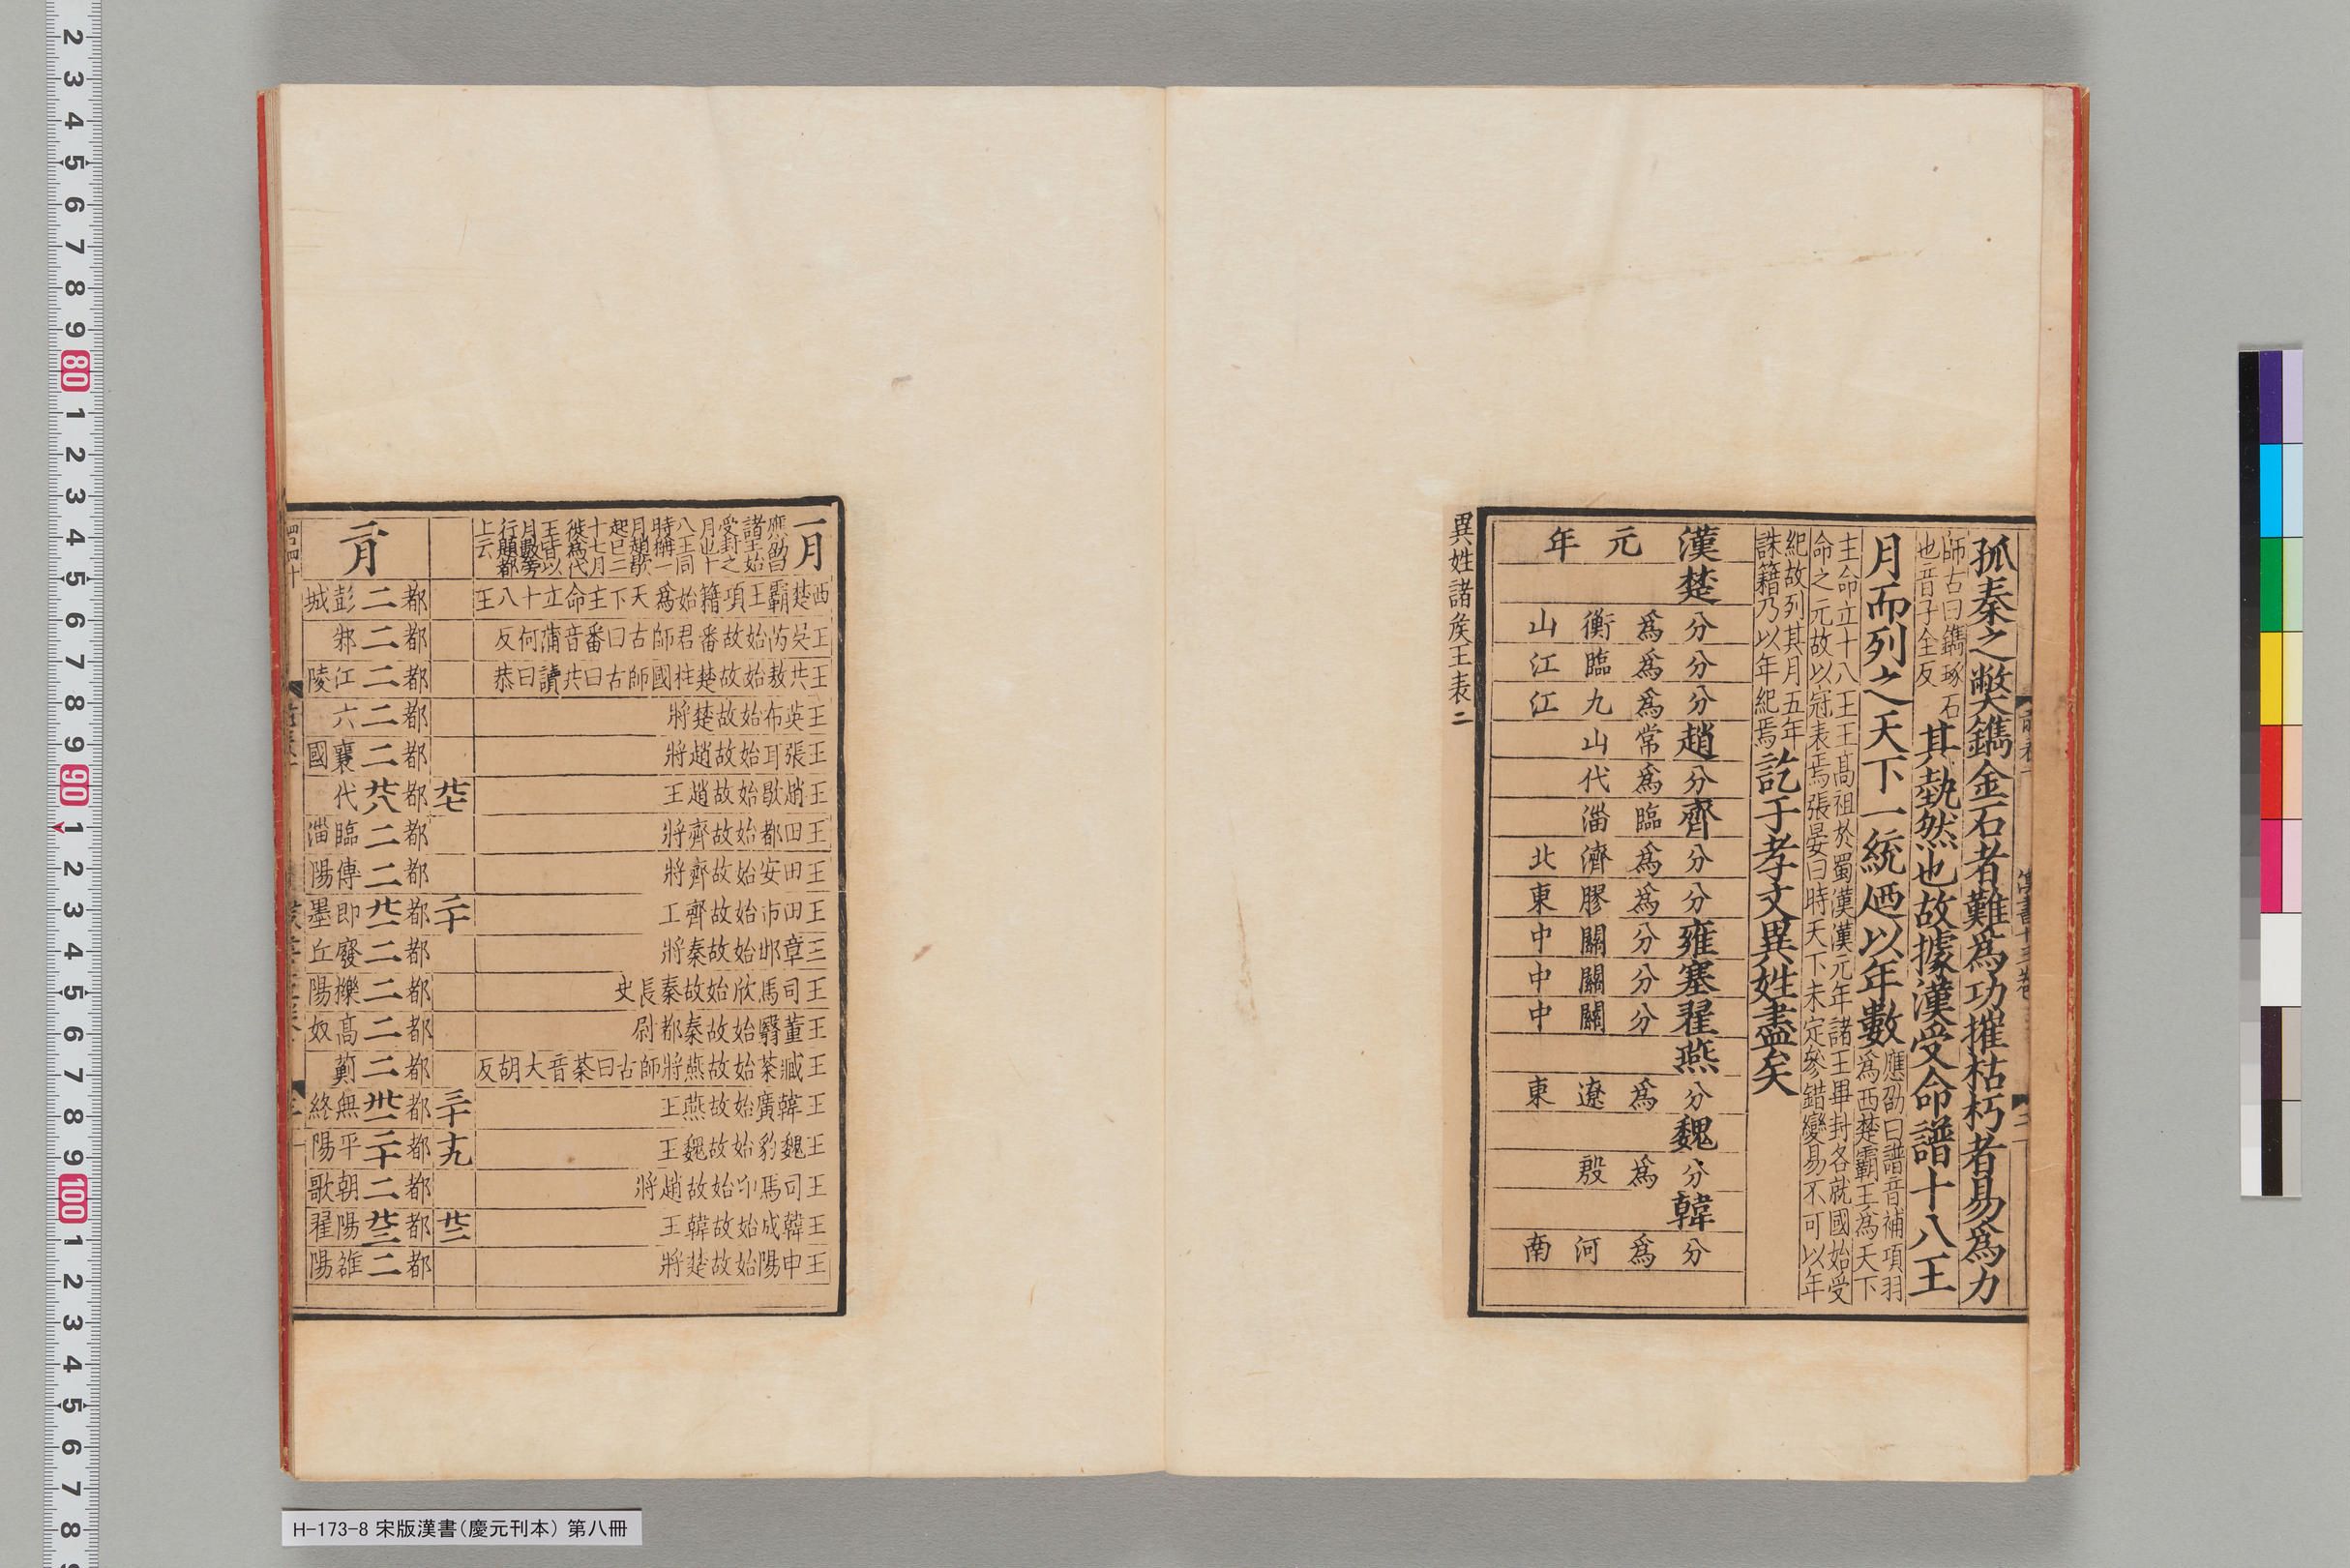 孤秦之弊鐫金石者難爲功摧枯朽者易爲力
師古曰鐫琢石
也音子全反
其埶然也故據漢受命譜十八王
月而列之天下一統廼以年數
應劭曰譜音補項羽
爲西楚霸王為天下
主命立十八王王高祖於蜀漢漢元年諸王畢封各就國始受
命之元故以冠表焉張晏曰時天下未定參錯變易不可以年
紀故列其月五年
誅籍乃以年紀焉
訖于孝文異姓盡矣
漢 元年
楚
分爲衡山
分爲臨江
分爲九江
趙 常山
分爲代
齊 臨淄
分爲濟北
分爲膠東
雍 分關中
塞 分關中
翟 分關中
燕
分爲遼東
魏
分爲殷
韓
分爲河南
異姓諸矦王表二
一月
應劭曰
諸王始
受封之
月也十
八王同
時稱一
月趙歇
起已二
十七月
徙為代
王皆以
月數旁
行題都
上云
西楚霸王項籍始為天下主命立十八王
王吳芮始故番君師古曰番音蒲何反
王共敖始故楚柱國師古曰共讀曰恭
王英布始故楚將
王張耳始故趙將
王趙歇始故趙王
王田都始故齊將
王田安始故齊將
王田巿始故齊王
王章邯始故秦將
王司馬欣始故秦長史
王董翳始故秦都尉
王臧荼始故燕將師古曰荼音大胡反
王韓廣始故燕王
王魏豹始故魏王
王司馬卬始故趙將
王韓成始故韓王
王申陽始故楚將
廿七
二十
三十
十九
廿二
二月
都二彭城
都二邾
都二江陵
都二六
都二襄國
都廿八代
都二臨淄
都二博陽
都廿一即墨
都二廢丘
都二櫟陽
都二高奴
都二薊
都卅一無終
都二十平陽
都二朝歌
都廿三陽翟
都二雒陽
H-173-8 宋版漢書(慶元刊本) 第八冊